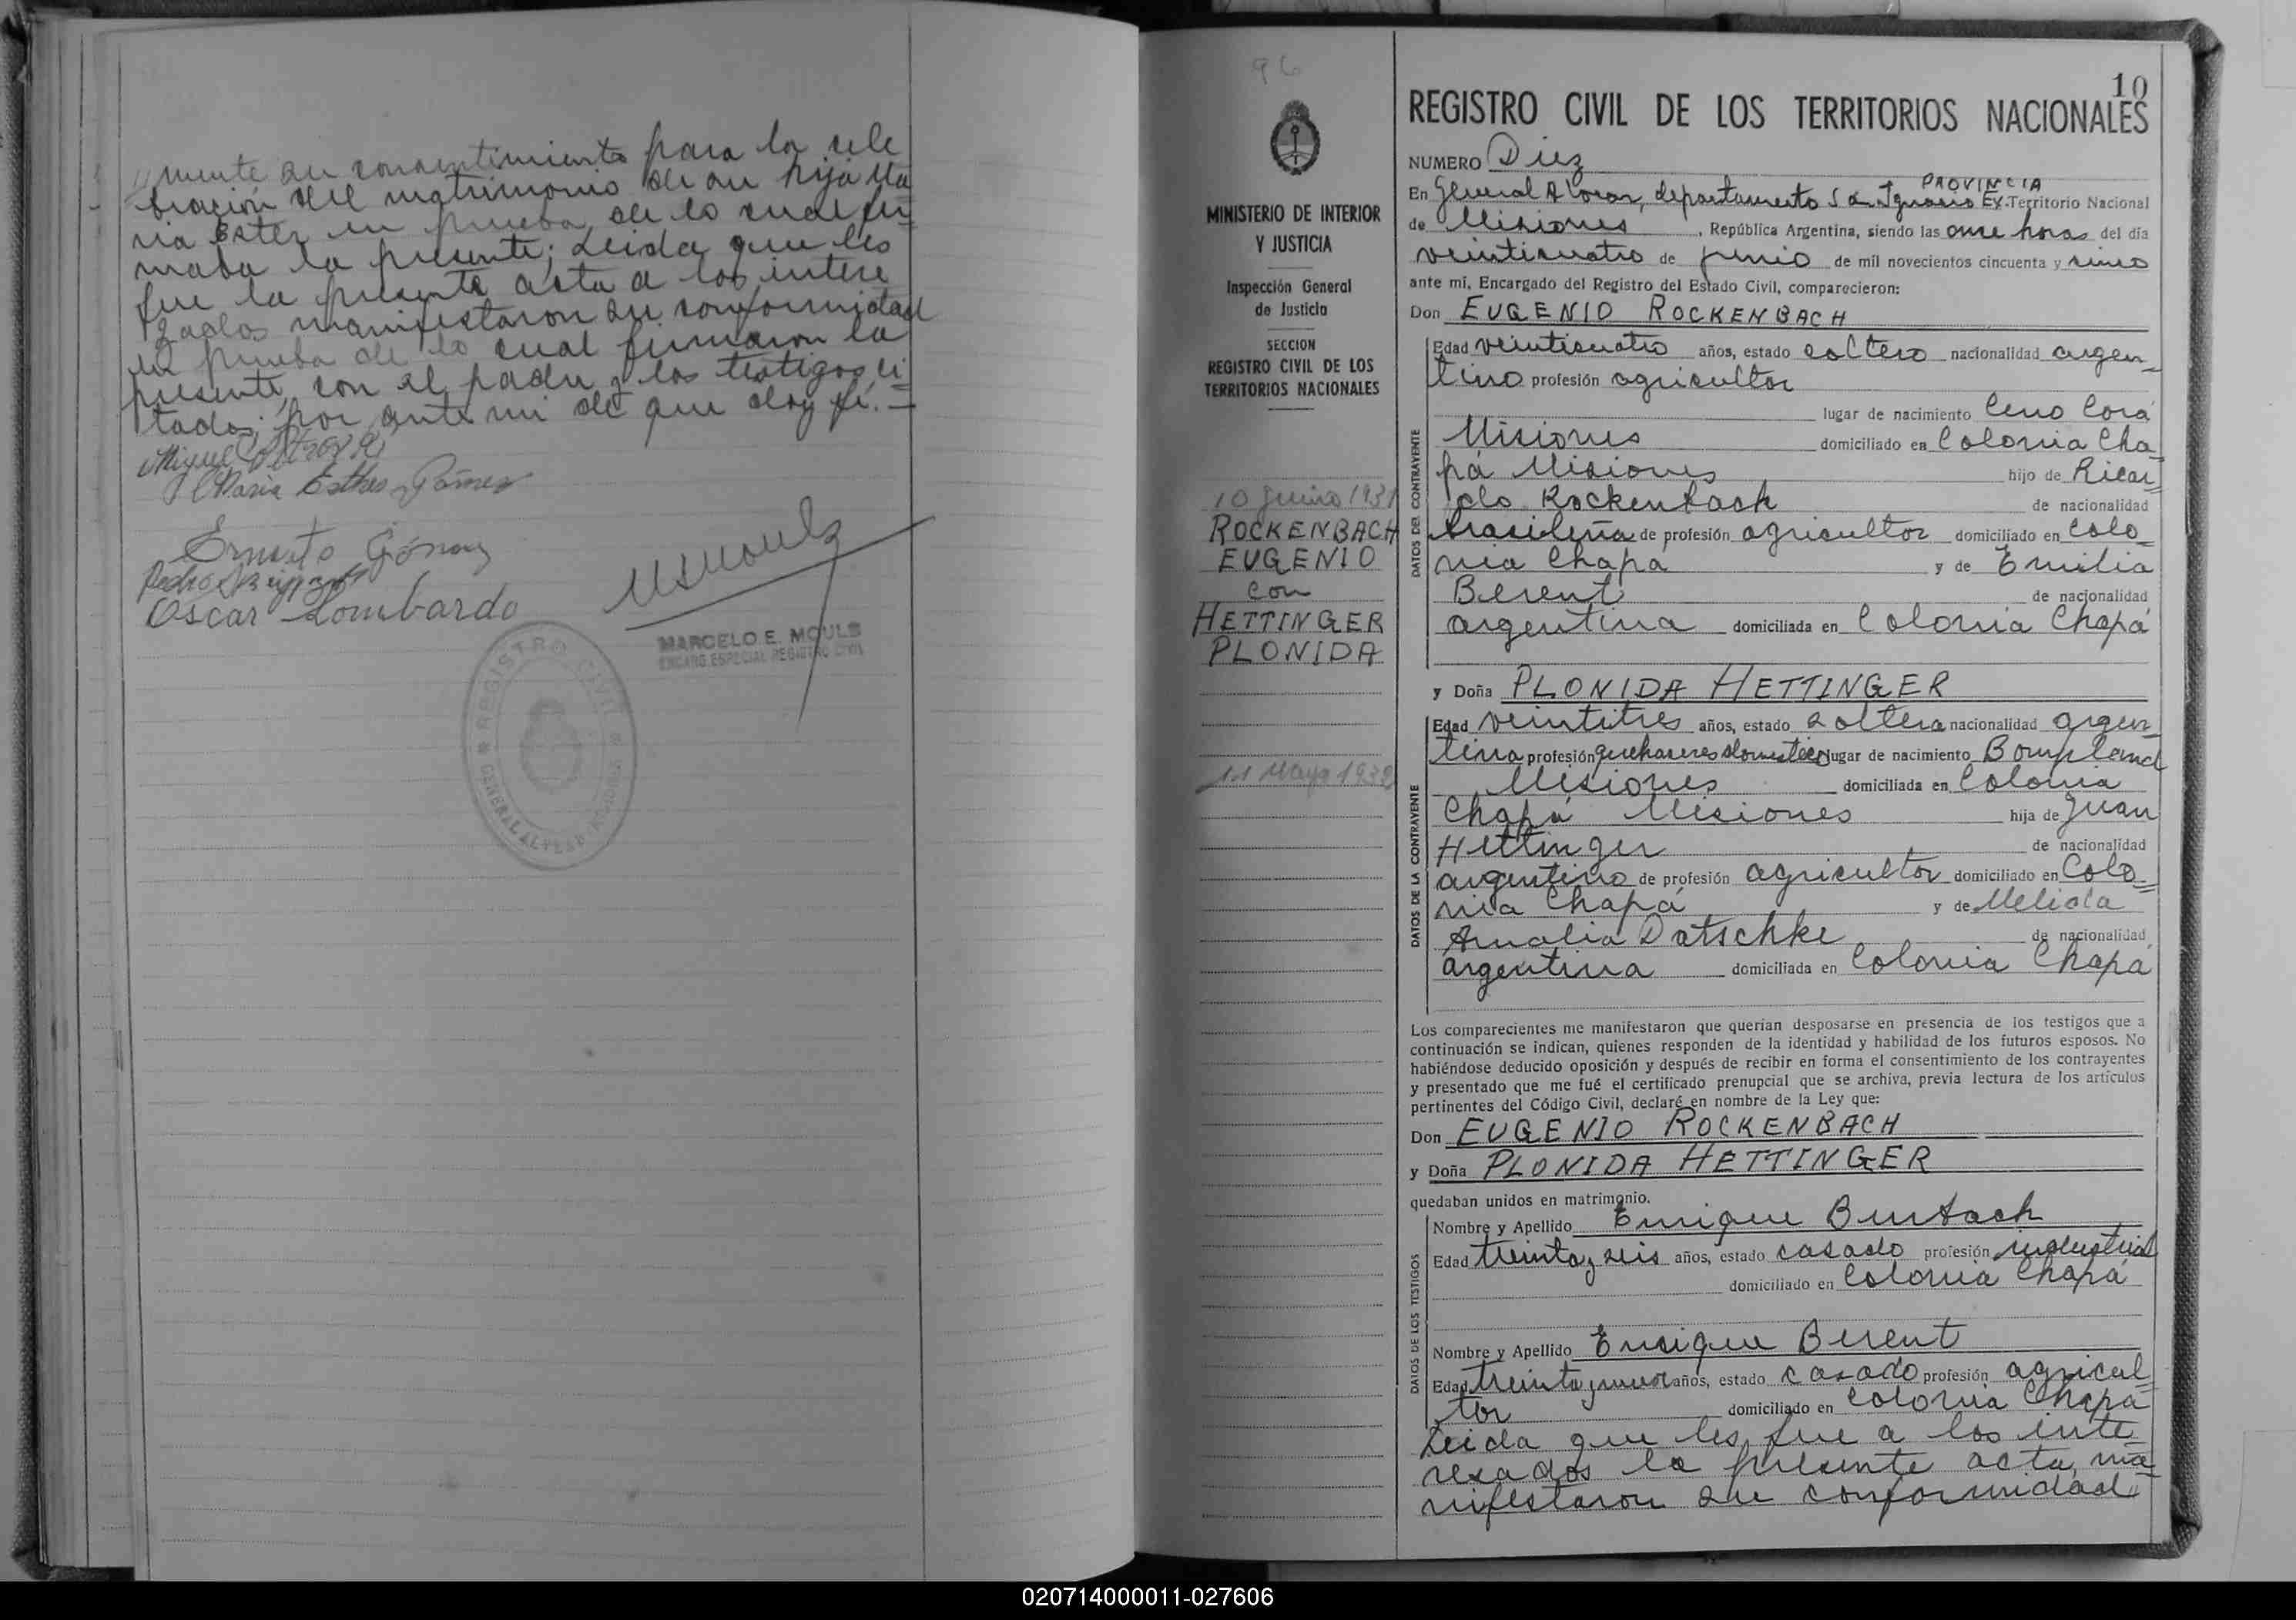 mente su consentimiento para la cele
bración del matrimonio de su hija Ma
ria Ester en prueba de lo cual fir-
maba la presente; Leida que les
fue la presente acta a los intere
zados manifestaron su conformidad
en prueba de lo cual firmaron la
presente, con el padre y los testigos ci-
tados; por ante mi de que doy fé.—
Miguel
Maria Esther Gómez
Ernesto Gómez
Pedro
Oscar Lombardo
MARCELO E. MOULS
ENCARG. ESPECIAL REGISTRO CIVIL
REGISTRO CIVIL
GENERAL ALVEAR
96
MINISTERIO DE INTERIOR
Y JUSTICIA
Inspección General
de Justicia
SECCION
REGISTRO CIVIL DE LOS
TERRITORIOS NACIONALES
10 Junio 1931
ROCKENBACH
EUGENIO
con
HETTINGER
PLONIDA
11 Mayo 1932
10
REGISTRO CIVIL DE LOS TERRITORIOS NACIONALES
NUMERO Diez
PROVINCIA
En General Alvear, departamento S. Ignacio Ex-Territorio Nacional
de Misiones, República Argentina, siendo las once horas del día
veinticuatro de junio de mil novecientos cincuenta y cinco
ante mí, Encargado del Registro del Estado Civil, comparecieron:
Don EUGENIO ROCKENBACH
DATOS DEL CONTRAYENTE
Edad veinticuatro años, estado soltero nacionalidad argen-
tino profesión agricultor
lugar de nacimiento Cerro Corá
Misiones domiciliado en Colonia Cha
pá Misiones hijo de Ricar
do Rockenbach de nacionalidad
brasileña de profesión agricultor domiciliado en Colo
nia Chapá y de Emilia
Berent de nacionalidad
argentina domiciliada en Colonia Chapá
y Doña PLONIDA HETTINGER
DATOS DE LA CONTRAYENTE
Edad veintitres años, estado soltera nacionalidad argen-
tina profesión quehaceres domestico lugar de nacimiento Bompland
Misiones domiciliada en Colonia
Chapá Misiones hija de Juan
Hettinger de nacionalidad
argentino de profesión agricultor domiciliado en Colo
nia Chapá y de Melida
Amalia Datschke de nacionalidad
argentina domiciliada en Colonia Chapá
Los comparecientes me manifestaron que querían desposarse en presencia de los testigos que a
continuación se indican, quienes responden de la identidad y habilidad de los futuros esposos. No
habiéndose deducido oposición y después de recibir en forma el consentimiento de los contrayentes
y presentado que me fué el certificado prenupcial que se archiva, previa lectura de los artículos
pertinentes del Código Civil, declaré en nombre de la Ley que:
Don EUGENIO ROCKENBACH
y Doña PLONIDA HETTINGER
quedaban unidos en matrimonio.
DATOS DE LOS TESTIGOS
Nombre y Apellido Enrique
Edad treinta y seis años, estado casado profesión industrial
domiciliado en Colonia Chapá
Nombre y Apellido Enrique Berent
Edad treinta y nueve años, estado casado profesión agricul
tor domiciliado en Colonia Chapá
Leida que les fue a los inte
resados la presente acta, ma
nifestaron su conformidad
020714000011-027606